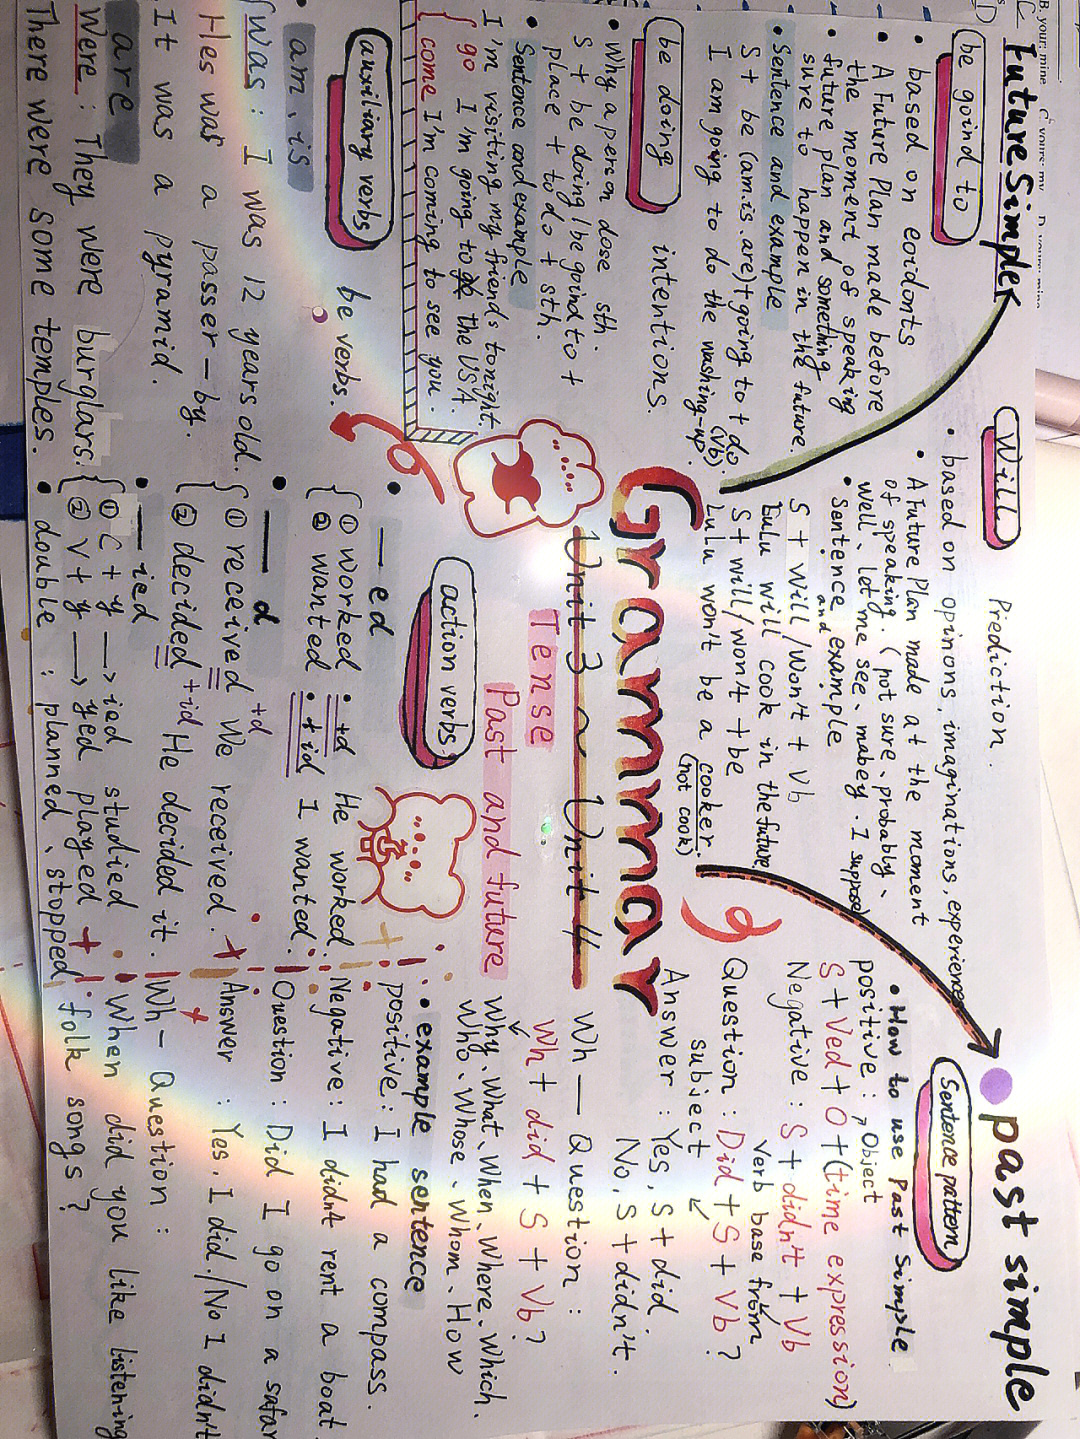 Future Simple
be goind to
• based on eoidonts
• A Future Plan made before
the moment of speaking
• future plan and something
sure to happen in the future.
• Sentence and example
S + be (am.is.are)+going to + do
(Vb)
I am going to do the washing-up.
be doing
intentions.
• Why a person dose sth.
S + be doing / be goind to +
place + to do + sth.
• Sentence and example
I'm visiting my friends tonight.
go I'm going to the USA.
come I'm coming to see you.
Will
Prediction.
• based on opinons, imaginations, experience
• A Future Plan made at the moment
of speaking. (not sure、probably、
well、let me see、mabey. I suppose)
• Sentence and example
S + will / won't + Vb
Lulu will cook in the future
S + will / won't + be
Lulu won't be a cooker.
(not cook)
Grammar
Unit 3 ~ Unit 4
Tense
Past and future
past simple
Sentence pattern
• How to use Past Simple
positive : Object
S + Ved + O + (time expression)
Negative : S + didn't + Vb
Verb base from
Question : Did + S + Vb ?
subject
Answer : Yes, S + did
No, S + didn't.
Wh — Question :
Wh + did + S + Vb ?
Why、What、When、Where、Which.
Who、Whose、Whom、How
• example sentence
positive : I had a compass.
Negative : I didn't rent a boat.
Question : Did I go on a safar
Answer : Yes. I did. / No I didn't
Wh - Question :
When did you like listening
folk songs ?
auxiliary verbs
be verbs.
• am, is
was : I was 12 years old.
Hes was a passer-by.
It was a pyramid.
are
were : They were burglars.
There were some temples.
action verbs
• —ed
① worked : +d He worked.
② wanted : +id I wanted.
• —d
① received +d We received.
② decided +id He decided it.
• —ied
① C + y → ied studied
② V + y → yed played
• double : planned、stopped